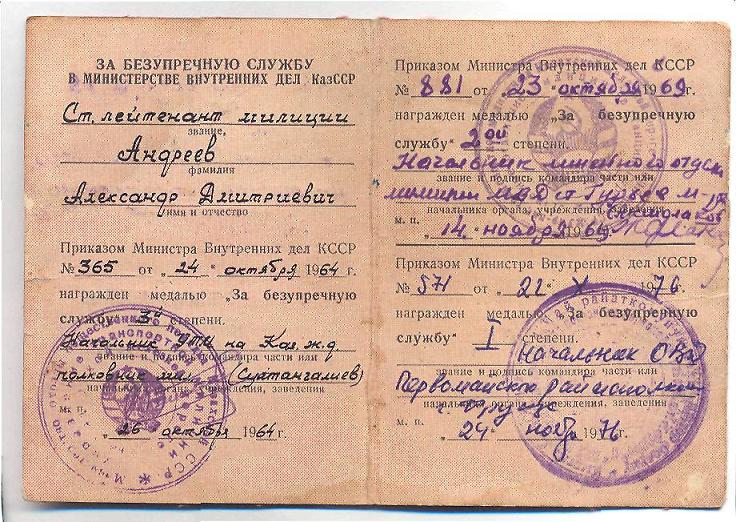 ЗА БЕЗУПРЕЧНУЮ СЛУЖБУ
В МИНИСТЕРСТВЕ ВНУТРЕННИХ ДЕЛ КазССР
Ст. лейтенант милиции
звание,
Андреев
фамилия
Александр Дмитриевич
имя и отчество
Приказом Министра Внутренних дел КССР
№ 365 от „24" октября 1964 г.
награжден медалью „За безупречную
службу" 3й степени.
Начальник на Каз. ж.д.
звание и подпись командира части или
полковник (Сухтангалиев)
начальника органа, учреждения, заведения
м. п.
„26" октября 1964 г.
Приказом Министра Внутренних дел КССР
№ 881 от „23" октября 1969 г.
награжден медалью „За безупречную
службу" 2ой степени.
Начальник линейного отдел
звание и подпись командира части или
милиции ст Гурьев
начальника органа, учреждения, заведения
м. п. „14" ноября 1969 г.
Приказом Министра Внутренних дел КССР
№ 571 от „21" X 1976 г.
награжден медалью „За безупречную
службу" I степени.
Начальник ОВД
звание и подпись командира части или
Первомайского райисполкома
начальника органа, учреждения, заведения
г. Фрунзе
м. п. „24" нояб 1976 г.